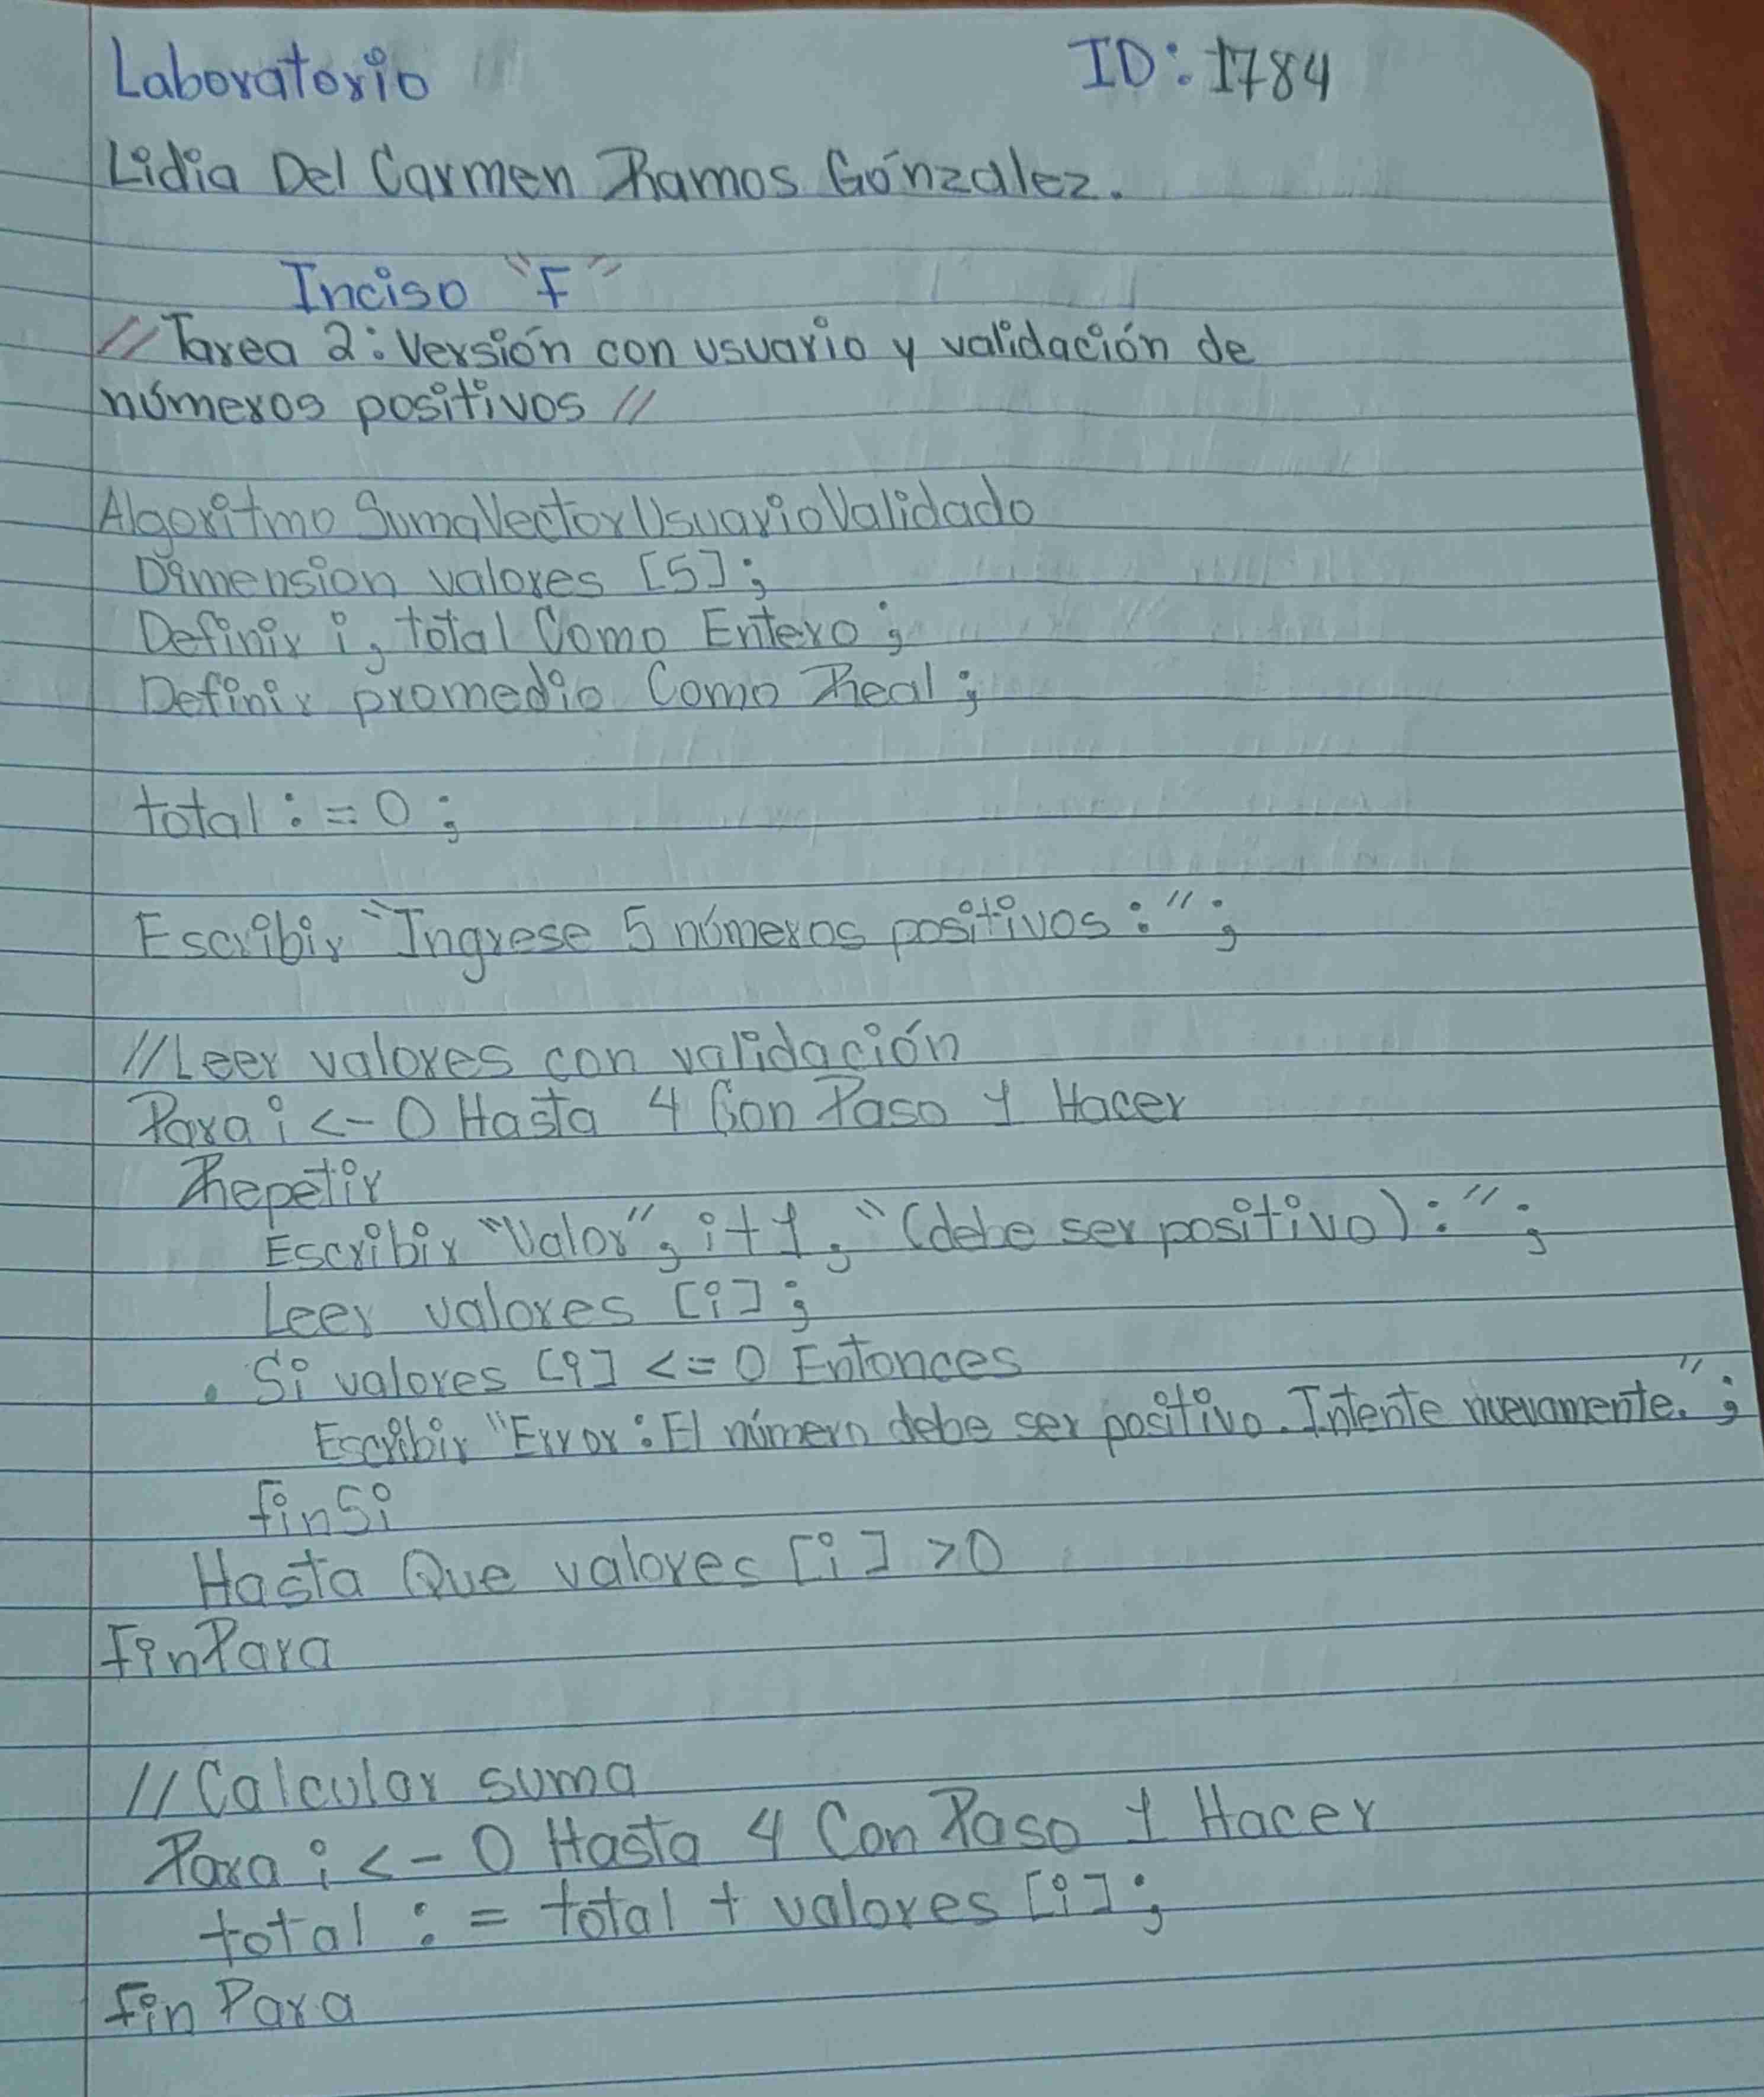 Laboratorio ID: 1784
Lidia Del Carmen Ramos Gónzalez.
Inciso "F"
// Tarea 2: Versión con usuario y validación de
números positivos //
Algoritmo SumaVectorUsuarioValidado
Dimension valores [5];
Definir i, total Como Entero;
Definir promedio Como Real;
total := 0;
Escribir "Ingrese 5 números positivos:";
//Leer valores con validación
Para i <- 0 Hasta 4 Con Paso 1 Hacer
Repetir
Escribir "Valor", i+1, "(debe ser positivo):";
Leer valores [i];
Si valores [i] <= 0 Entonces
Escribir "Error: El número debe ser positivo. Intente nuevamente.";
finSi
Hasta Que valores [i] >0
FinPara
//Calcular suma
Para i <- 0 Hasta 4 Con Paso 1 Hacer
total := total + valores [i];
fin Para